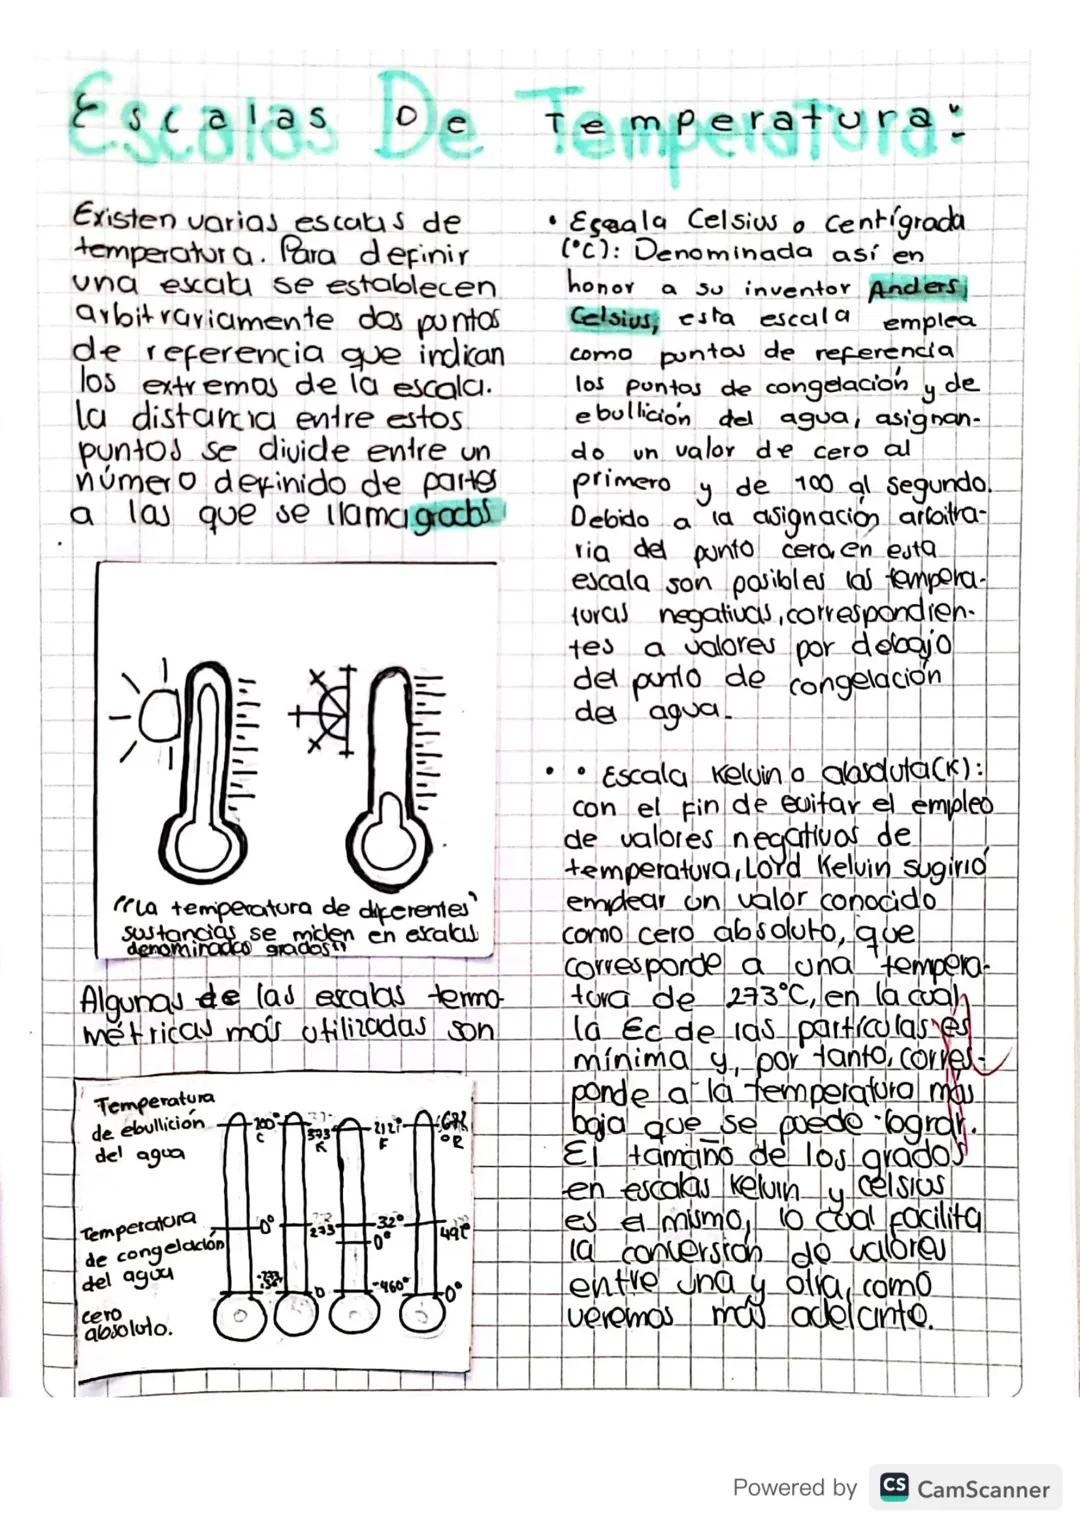 Escalas De Temperatura:
Existen varias escalas de
temperatura. Para definir
una escala se establecen
arbitrariamente dos puntos
de referencia que indican
los extremos de la escala.
la distancia entre estos
puntos se divide entre un
número definido de partes
a las que se llama grados
"La temperatura de diferentes
sustancias se miden en escalas
denominadas grados"
Algunas de las escalas termo-
métricas más utilizadas son
Temperatura
de ebullición
del agua
100°
C
373
K
212°
F
672
°R
Temperatura
de congelación
del agua
0°
273
32°
0°
491°
cero
absoluto.
-273
0
-460°
0°
• Escala Celsius o Centígrada
(°C): Denominada así en
honor a su inventor Anders
Celsius, esta escala emplea
como puntos de referencia
los puntos de congelación y de
ebullición del agua, asignan-
do un valor de cero al
primero y de 100 al segundo.
Debido a la asignación arbitra-
ria del punto cero, en esta
escala son posibles las tempera-
turas negativas, correspondien-
tes a valores por debajo
del punto de congelación
del agua.
• • Escala Kelvin o absoluta(K):
con el fin de evitar el empleo
de valores negativos de
temperatura, Lord Kelvin sugirió
emplear un valor conocido
como cero absoluto, que
corresponde a una tempera-
tura de 273°C, en la cual
la Ec de las partículas es
mínima y, por tanto, corres-
ponde a la temperatura más
baja que se puede lograr.
El tamaño de los grados
en escalas Kelvin y Celsius
es el mismo, lo cual facilita
la conversión de valores
entre una y otra, como
veremos más adelante.
Powered by CS CamScanner